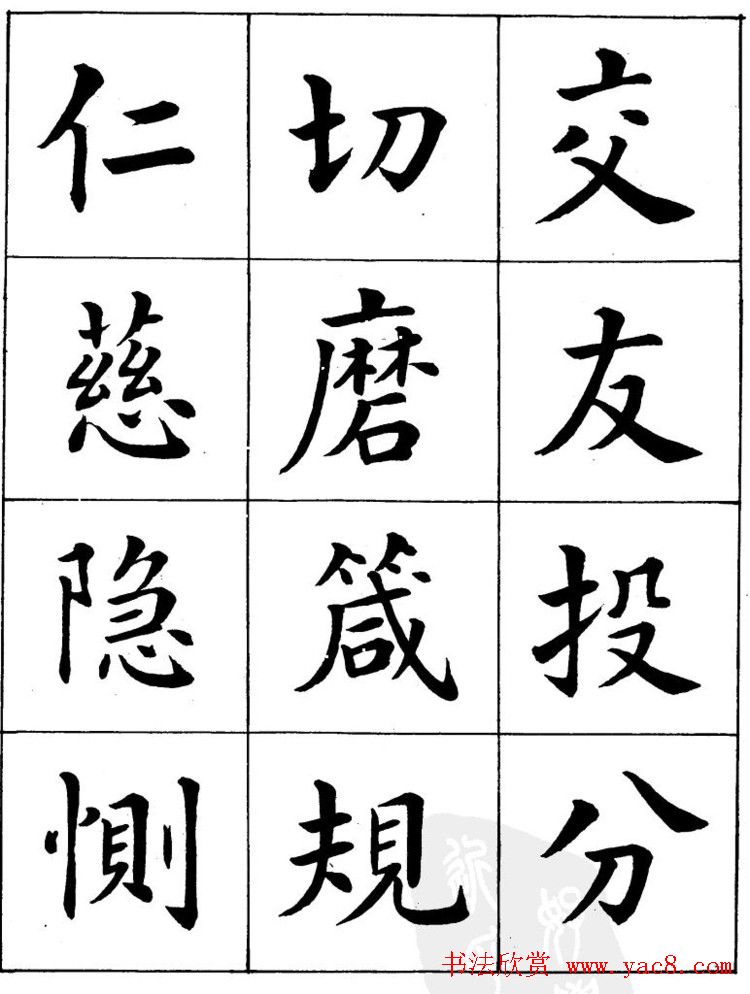 交友投分
切磨箴規
仁慈隐惻
书法欣赏 www.yac8.com